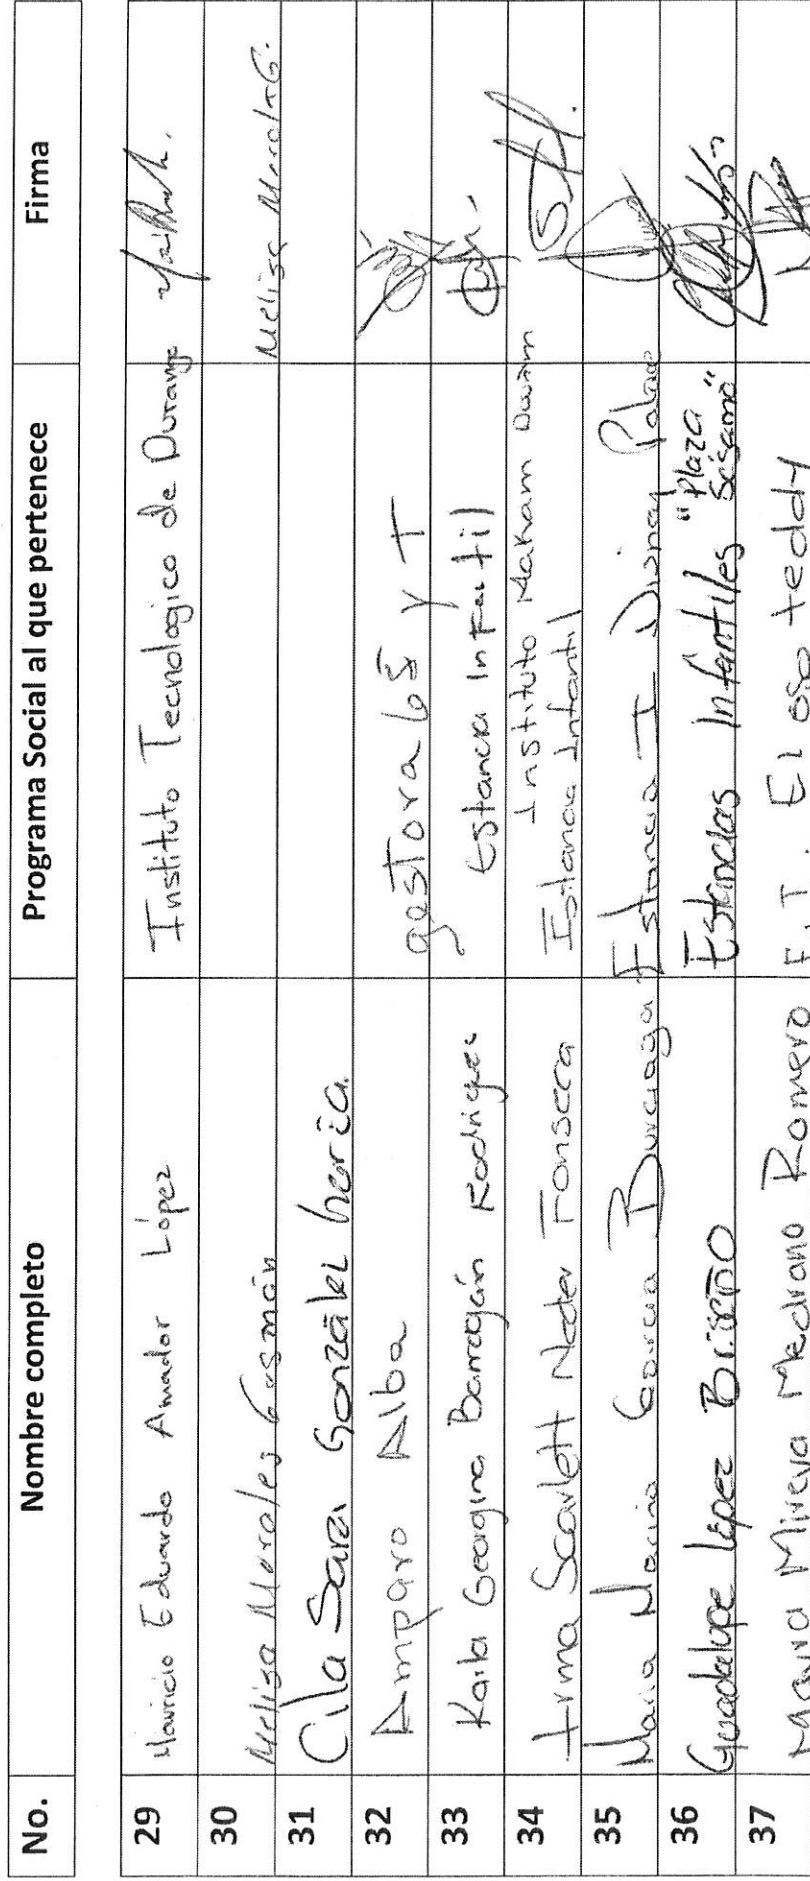 No. Nombre completo Programa Social al que pertenece Firma
29 Mauricio Eduardo Amador López Instituto Tecnologico de Durango
30 Meliza Morales Gusmán Meliza Morales G.
31 Cila Sarai González
32 Amparo Alba gestora 65 y T
33 Karla Georgina Barragán Rodriguez Estancia Infantil
34 Irma Scarlett Fonseca Instituto
Estancia Infantil
35 Maria Marina Garcia Burciaga Estancia I
36 Guadalupe López Briseño Estancias Infantiles "Plaza
Sésamo"
37 Mayra Mireya Medrano Romero E. I. El oso teddy